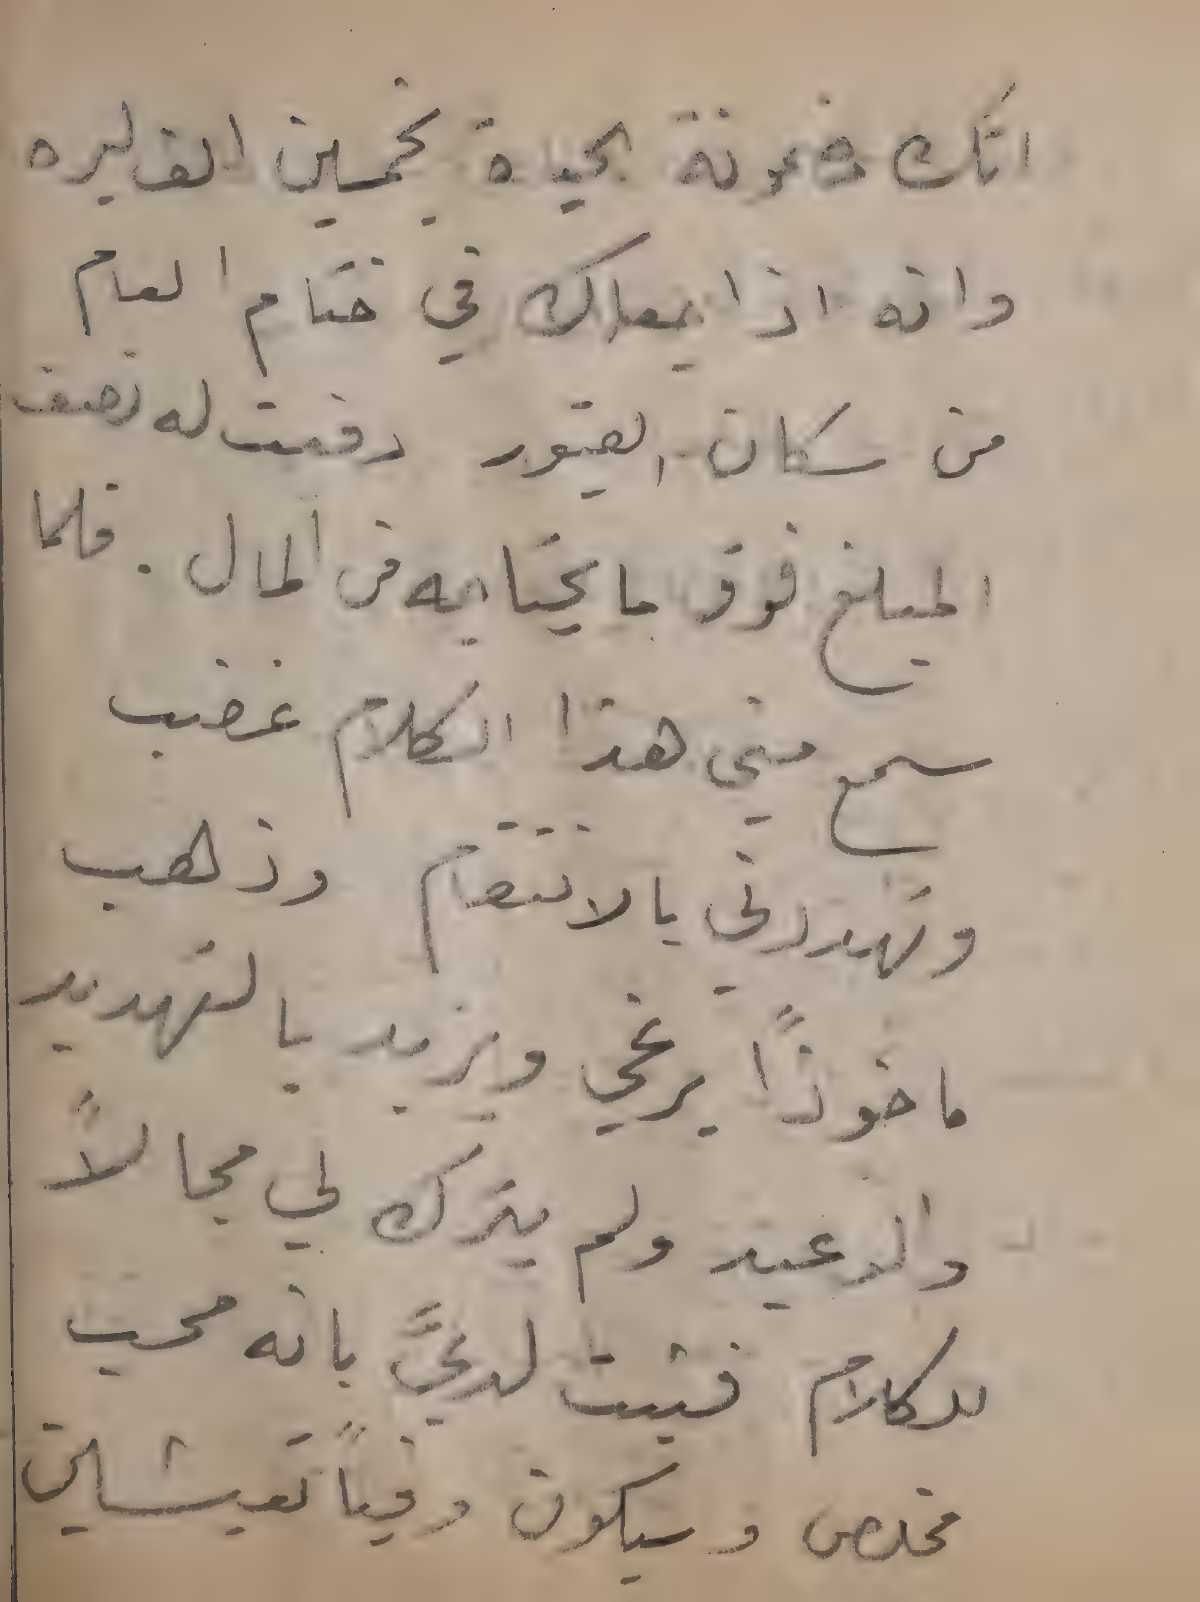 انك مضمونة الحياة بخمسين الف ليره
وانه اذا جعلك في ختام العام
من سكان القبور دفعت له نصف
المبلغ فوق ما يحتاجه من المال . فلما
سمع مني هذا الكلام غضب
وتهددني بالانتقام وذهب
ماخوذاً يرغي ويزبد بالتهديد
والوعيد ولم يترك لي مجالاً
للكلام فثبت لديَّ بانه محب
مخلص وسيكون وفياً تعيشين